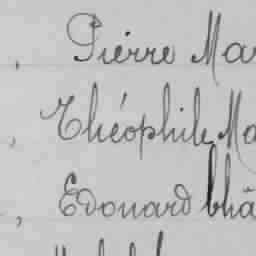 , Pierre Mar
, Théophile Ma
, Edouard Châ